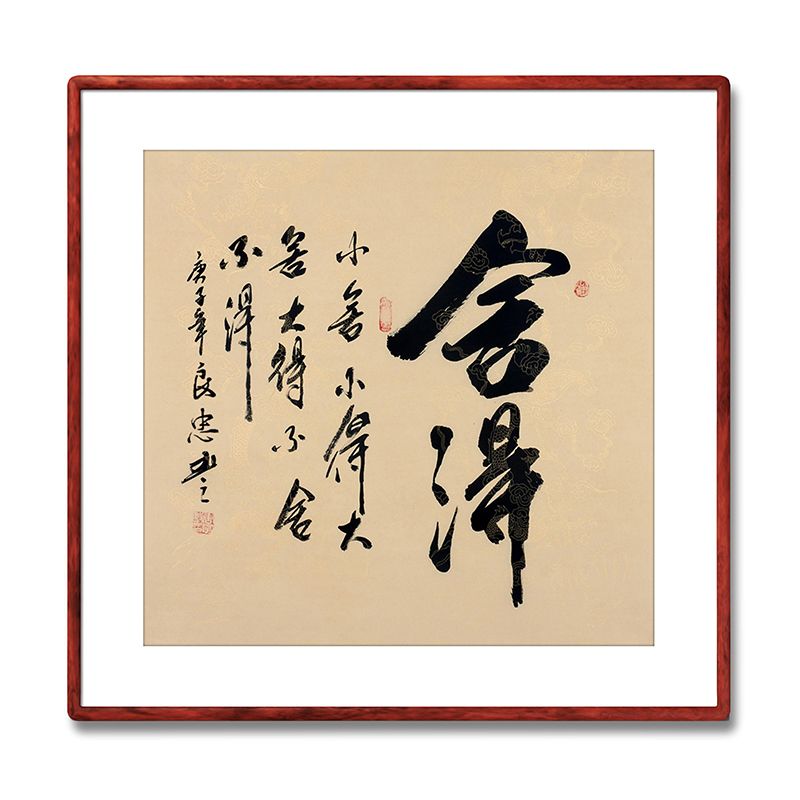 舍得
小舍小得大
舍大得不舍
不得
庚子年良忠书之